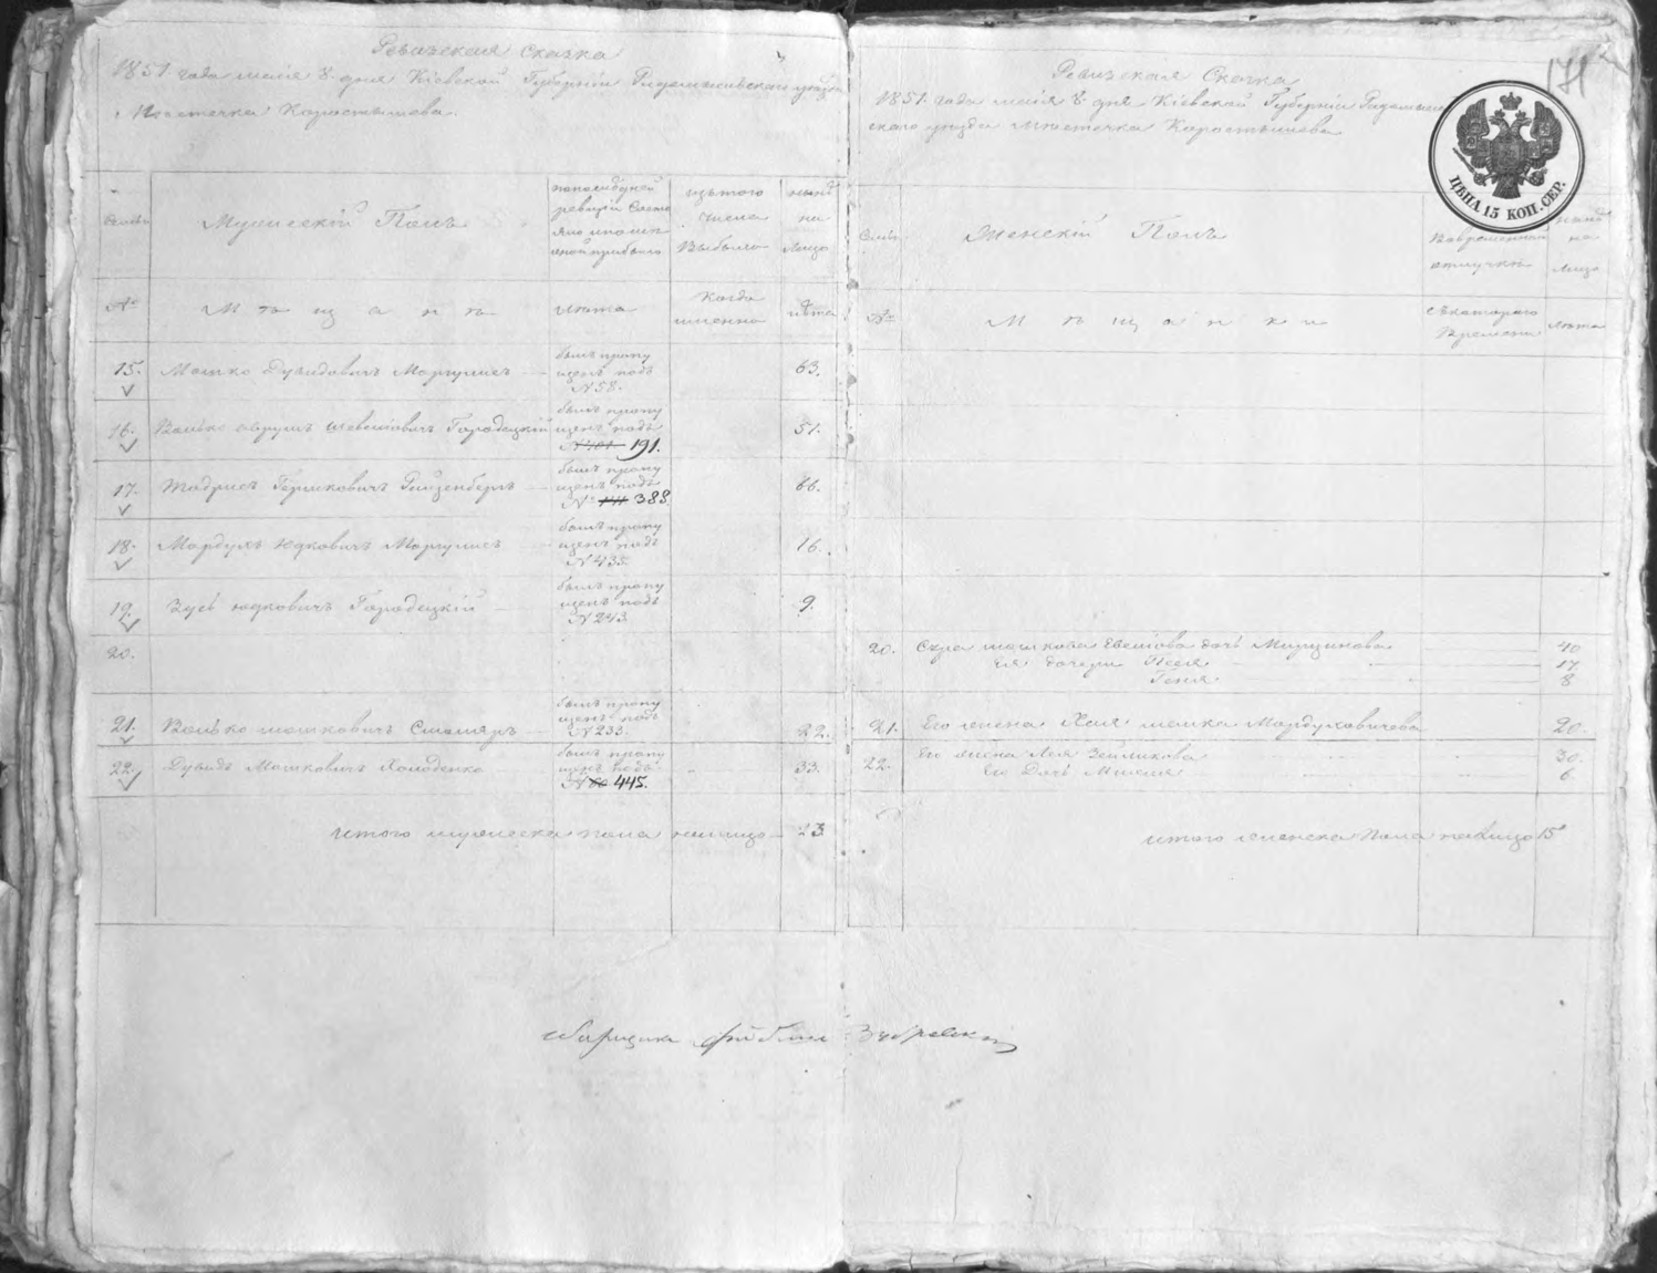 Ревизская Сказка
1851. года маія 8. дня Кіевской Губерніи Радомысльскаго уезда
Местечка Коростышева.
Семьи
Мужескій Полъ
по последней
ревизіи состо
яло и после
оной прибыло
изъ того
числа
Выбыло
ныне
на
лицо
№
Мещане
лета
Когда
именно
лета
15. Мошко Дувидовичъ Моргулисъ
былъ пропу
щенъ подъ
N 58.
63.
16. Волько Аврумъ Шевелювичъ Городецкій
былъ пропу
щенъ подъ
191.
51.
17. Тодрисъ Гершковичъ
былъ пропу
щенъ подъ
№ 388.
66.
18. Мордухъ Юдковичъ Моргулисъ
былъ пропу
щенъ подъ
N 435.
16.
19. Зусь Юдковичъ Городецкій
былъ пропу
щенъ подъ
N 243
9.
20.
21. Волько Мошковичъ Смоляръ
былъ пропу
щенъ подъ
N 233.
22.
22. Дувидъ Мошковичъ Холоденко
былъ пропу
щенъ подъ
N 445.
33.
итого мужеска пола на лицо 23
Ревизская Сказка
1851. года маія 8. дня Кіевской Губерніи Радомысль
скаго уезда Местечка Коростышева
171
ЦѢНА 15 КОП. СЕР.
Семьи
Женскій Полъ
Во временной
отлучке
ныне
на
лицо
№
Мещанки
Съ котораго
Времени
лета
20. Сура Мошкова дочь 40
Ея дочери Песя 17.
Геня 8
21. Его жена Хая Мошка Мордуховичева 20.
22. Его жена Лея Зейликова 30.
Его Дочь 6.
итого женска Пола на лицо 15